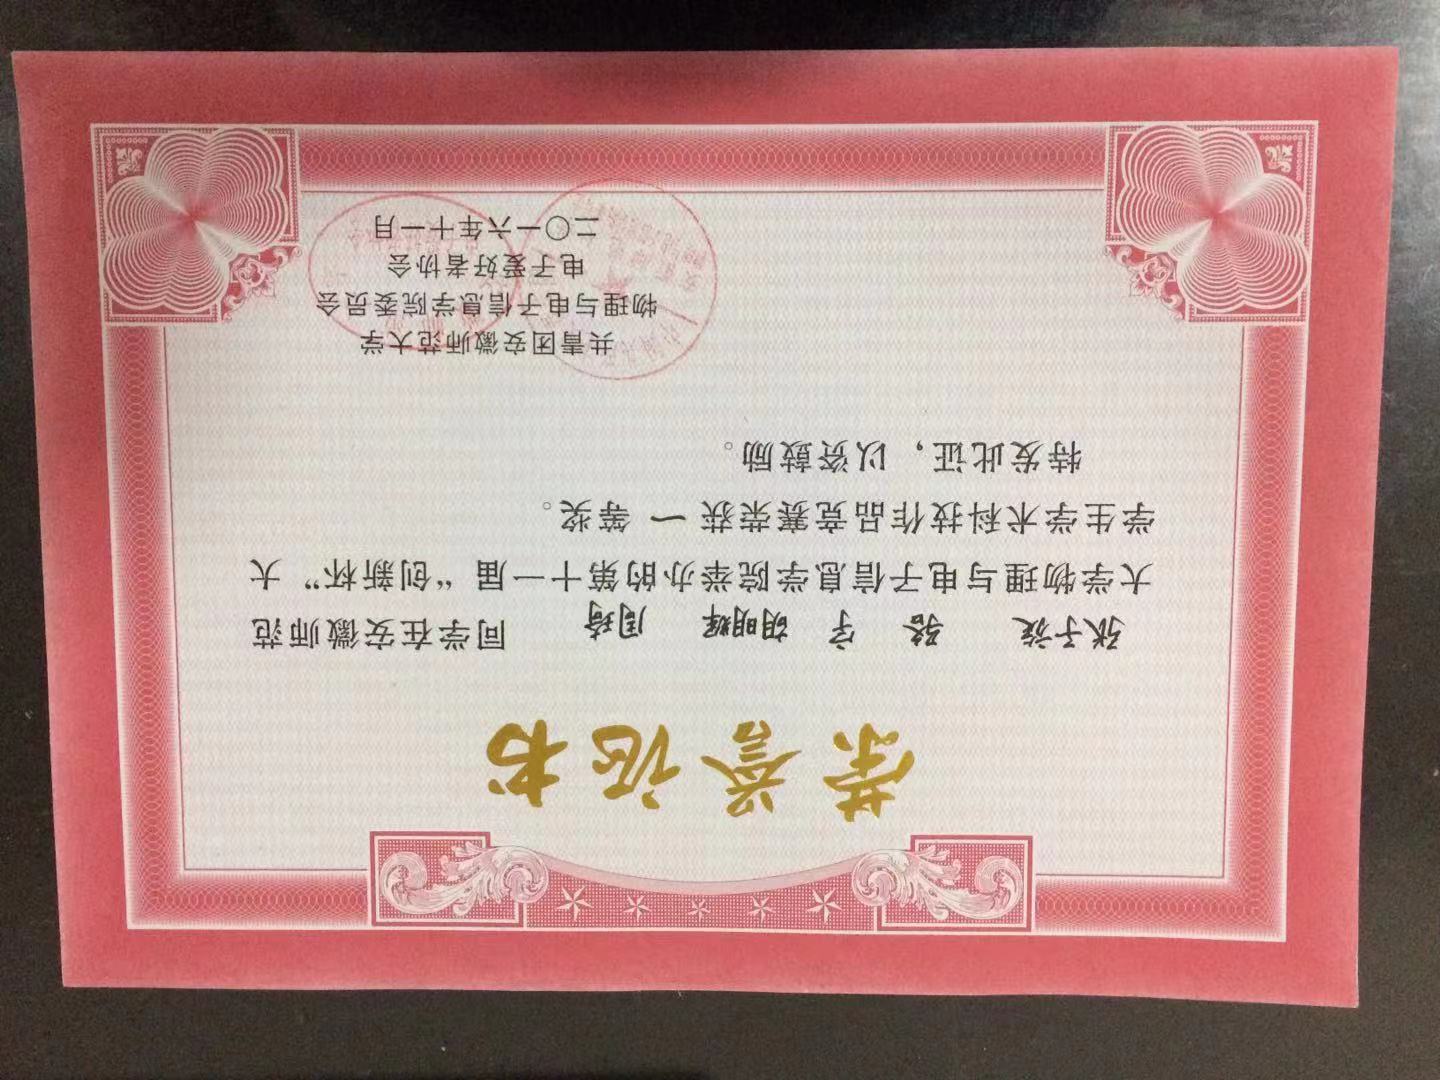 荣誉证书
张子旋 骆宇 胡明辉 周琦 同学在安徽师范
大学物理与电子信息学院举办的第十一届“创新杯”大
学生学术科技作品竞赛荣获 一 等奖。
特发此证，以资鼓励。
共青团安徽师范大学
物理与电子信息学院委员会
电子爱好者协会
二〇一六年十一月